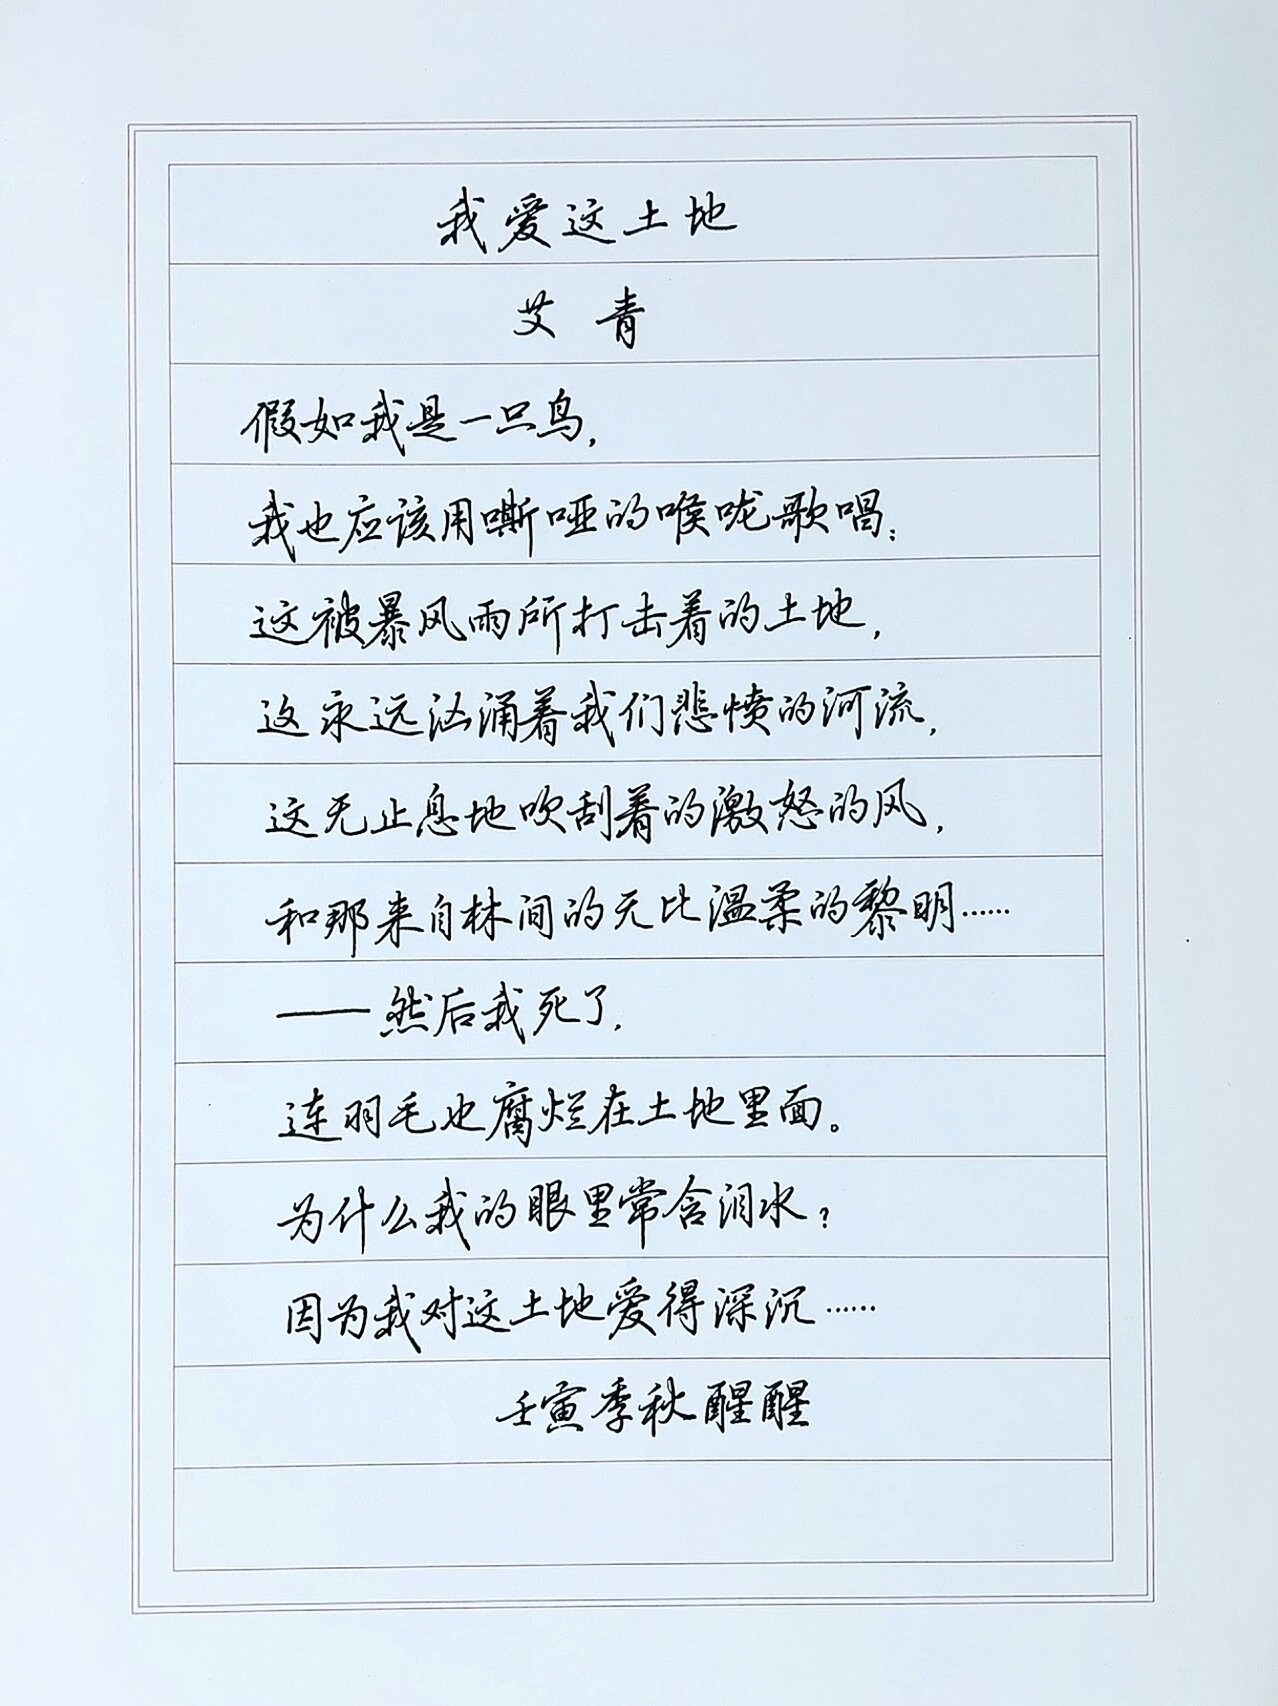 我爱这土地
艾青
假如我是一只鸟，
我也应该用嘶哑的喉咙歌唱：
这被暴风雨所打击着的土地，
这永远汹涌着我们悲愤的河流，
这无止息地吹刮着的激怒的风，
和那来自林间的无比温柔的黎明……
——然后我死了，
连羽毛也腐烂在土地里面。
为什么我的眼里常含泪水？
因为我对这土地爱得深沉……
壬寅季秋醒醒